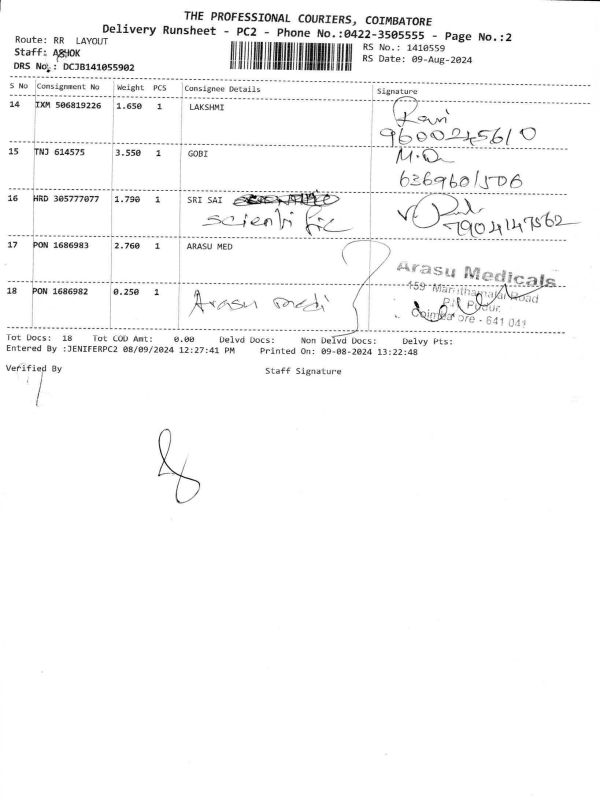 THE PROFESSIONAL COURIERS, COIMBATORE
Delivery Runsheet - PC2 - Phone No.:0422-3505555 - Page No.:2
Route: RR LAYOUT
RS No.: 1410559
Staff: ASHOK
RS Date: 09-Aug-2024
DRS No.: DCJB141055902
S No Consignment No Weight PCS Consignee Details Signature
14 IXM 506819226 1.650 1 LAKSHMI Ravi
9600245610
15 TNJ 614575 3.550 1 GOBI
6369601506
16 HRD 305777077 1.790 1 SRI SAI
scientific 7904147562
17 PON 1686983 2.760 1 ARASU MED
Arasu Medicals
159 Maruthamalai Road
18 PON 1686982 0.250 1 Arasu medi
P.N. Pudur,
Coimbatore - 641 041
Tot Docs: 18 Tot COD Amt: 0.00 Delvd Docs: Non Delvd Docs: Delvy Pts:
Entered By :JENIFERPC2 08/09/2024 12:27:41 PM Printed On: 09-08-2024 13:22:48
Verified By Staff Signature